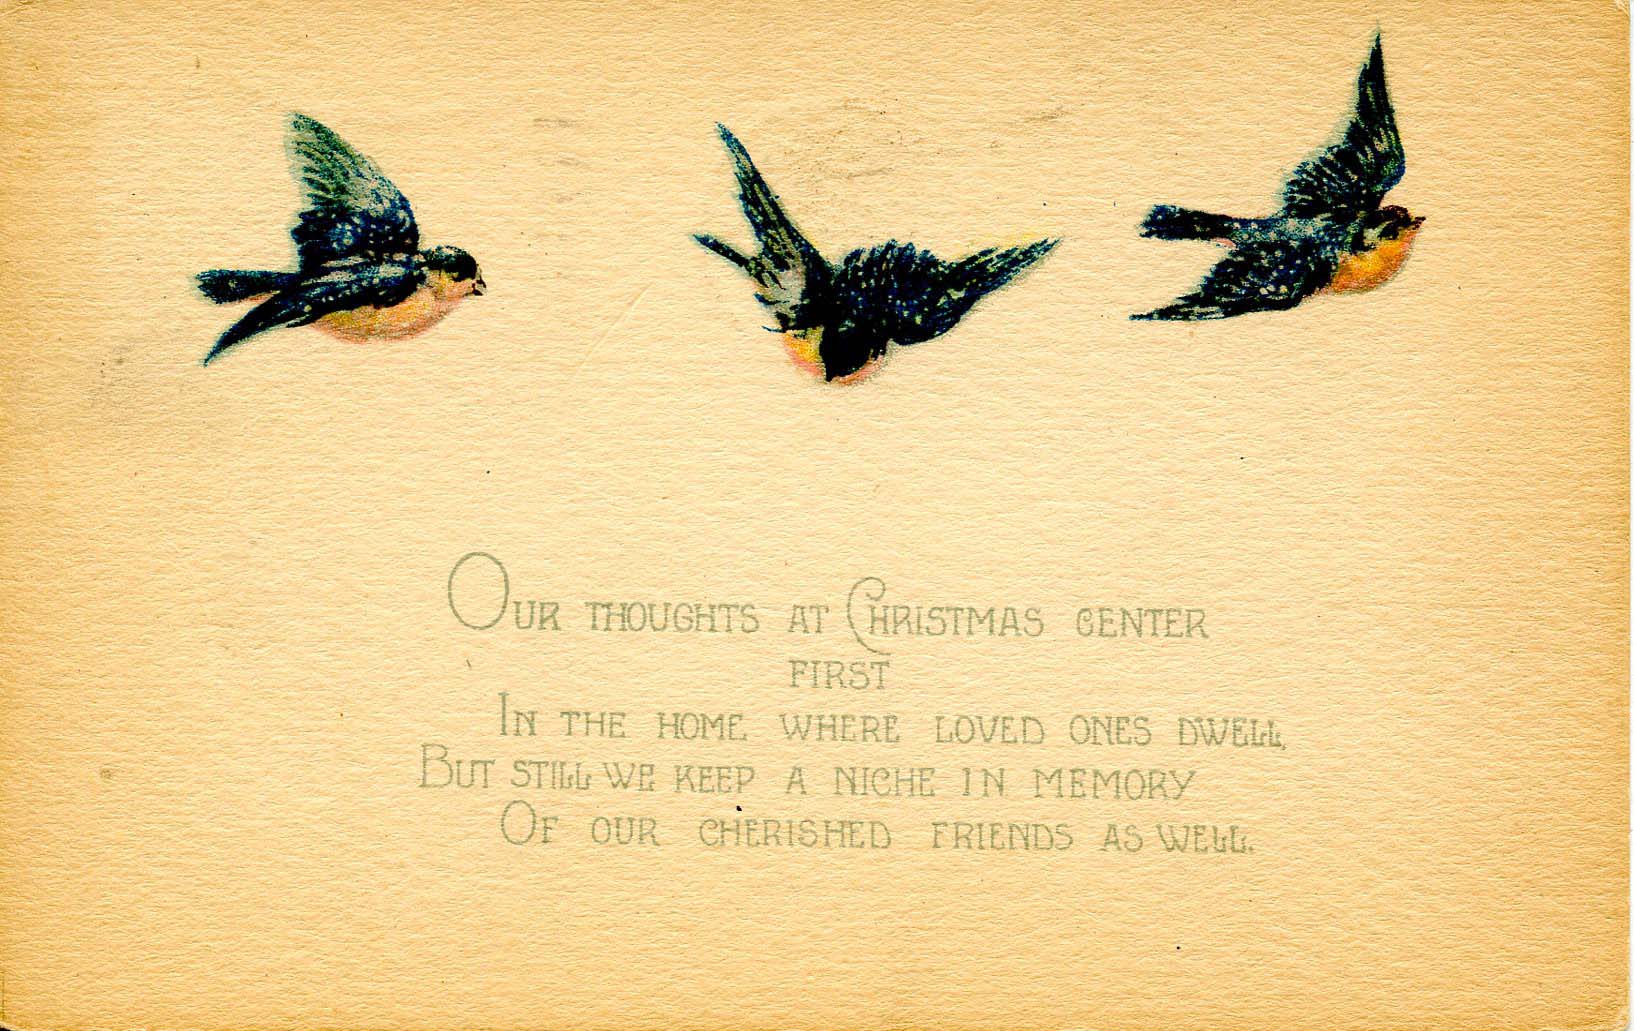 OUR THOUGHTS AT CHRISTMAS CENTER
FIRST
IN THE HOME WHERE LOVED ONES DWELL,
BUT STILL WE KEEP A NICHE IN MEMORY
OF OUR CHERISHED FRIENDS AS WELL.